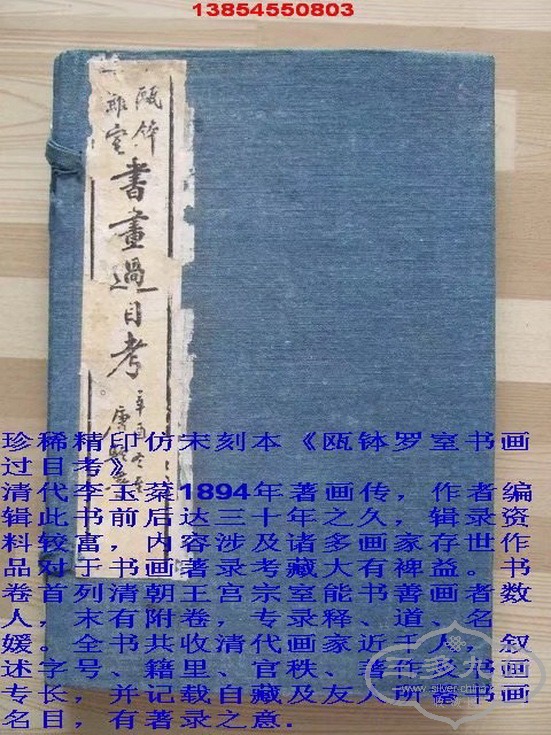 13854550803
甌鉢
羅室
書畫過目考
辛酉
珍稀精印仿宋刻本《瓯钵罗室书画
过目考》
清代李玉棻1894年著画传，作者编
辑此书前后达三十年之久，辑录资
料较富，内容涉及诸多画家存世作
品对于书画著录考藏大有裨益。书
卷首列清朝王宫宗室能书善画者数
人，末有附卷，专录释、道、名
媛。全书共收清代画家近千人，叙
述字号、籍里、官秩、著作及书画
专长，并记载自藏及友人所畜书画
名目，有著录之意.
www.silver.china